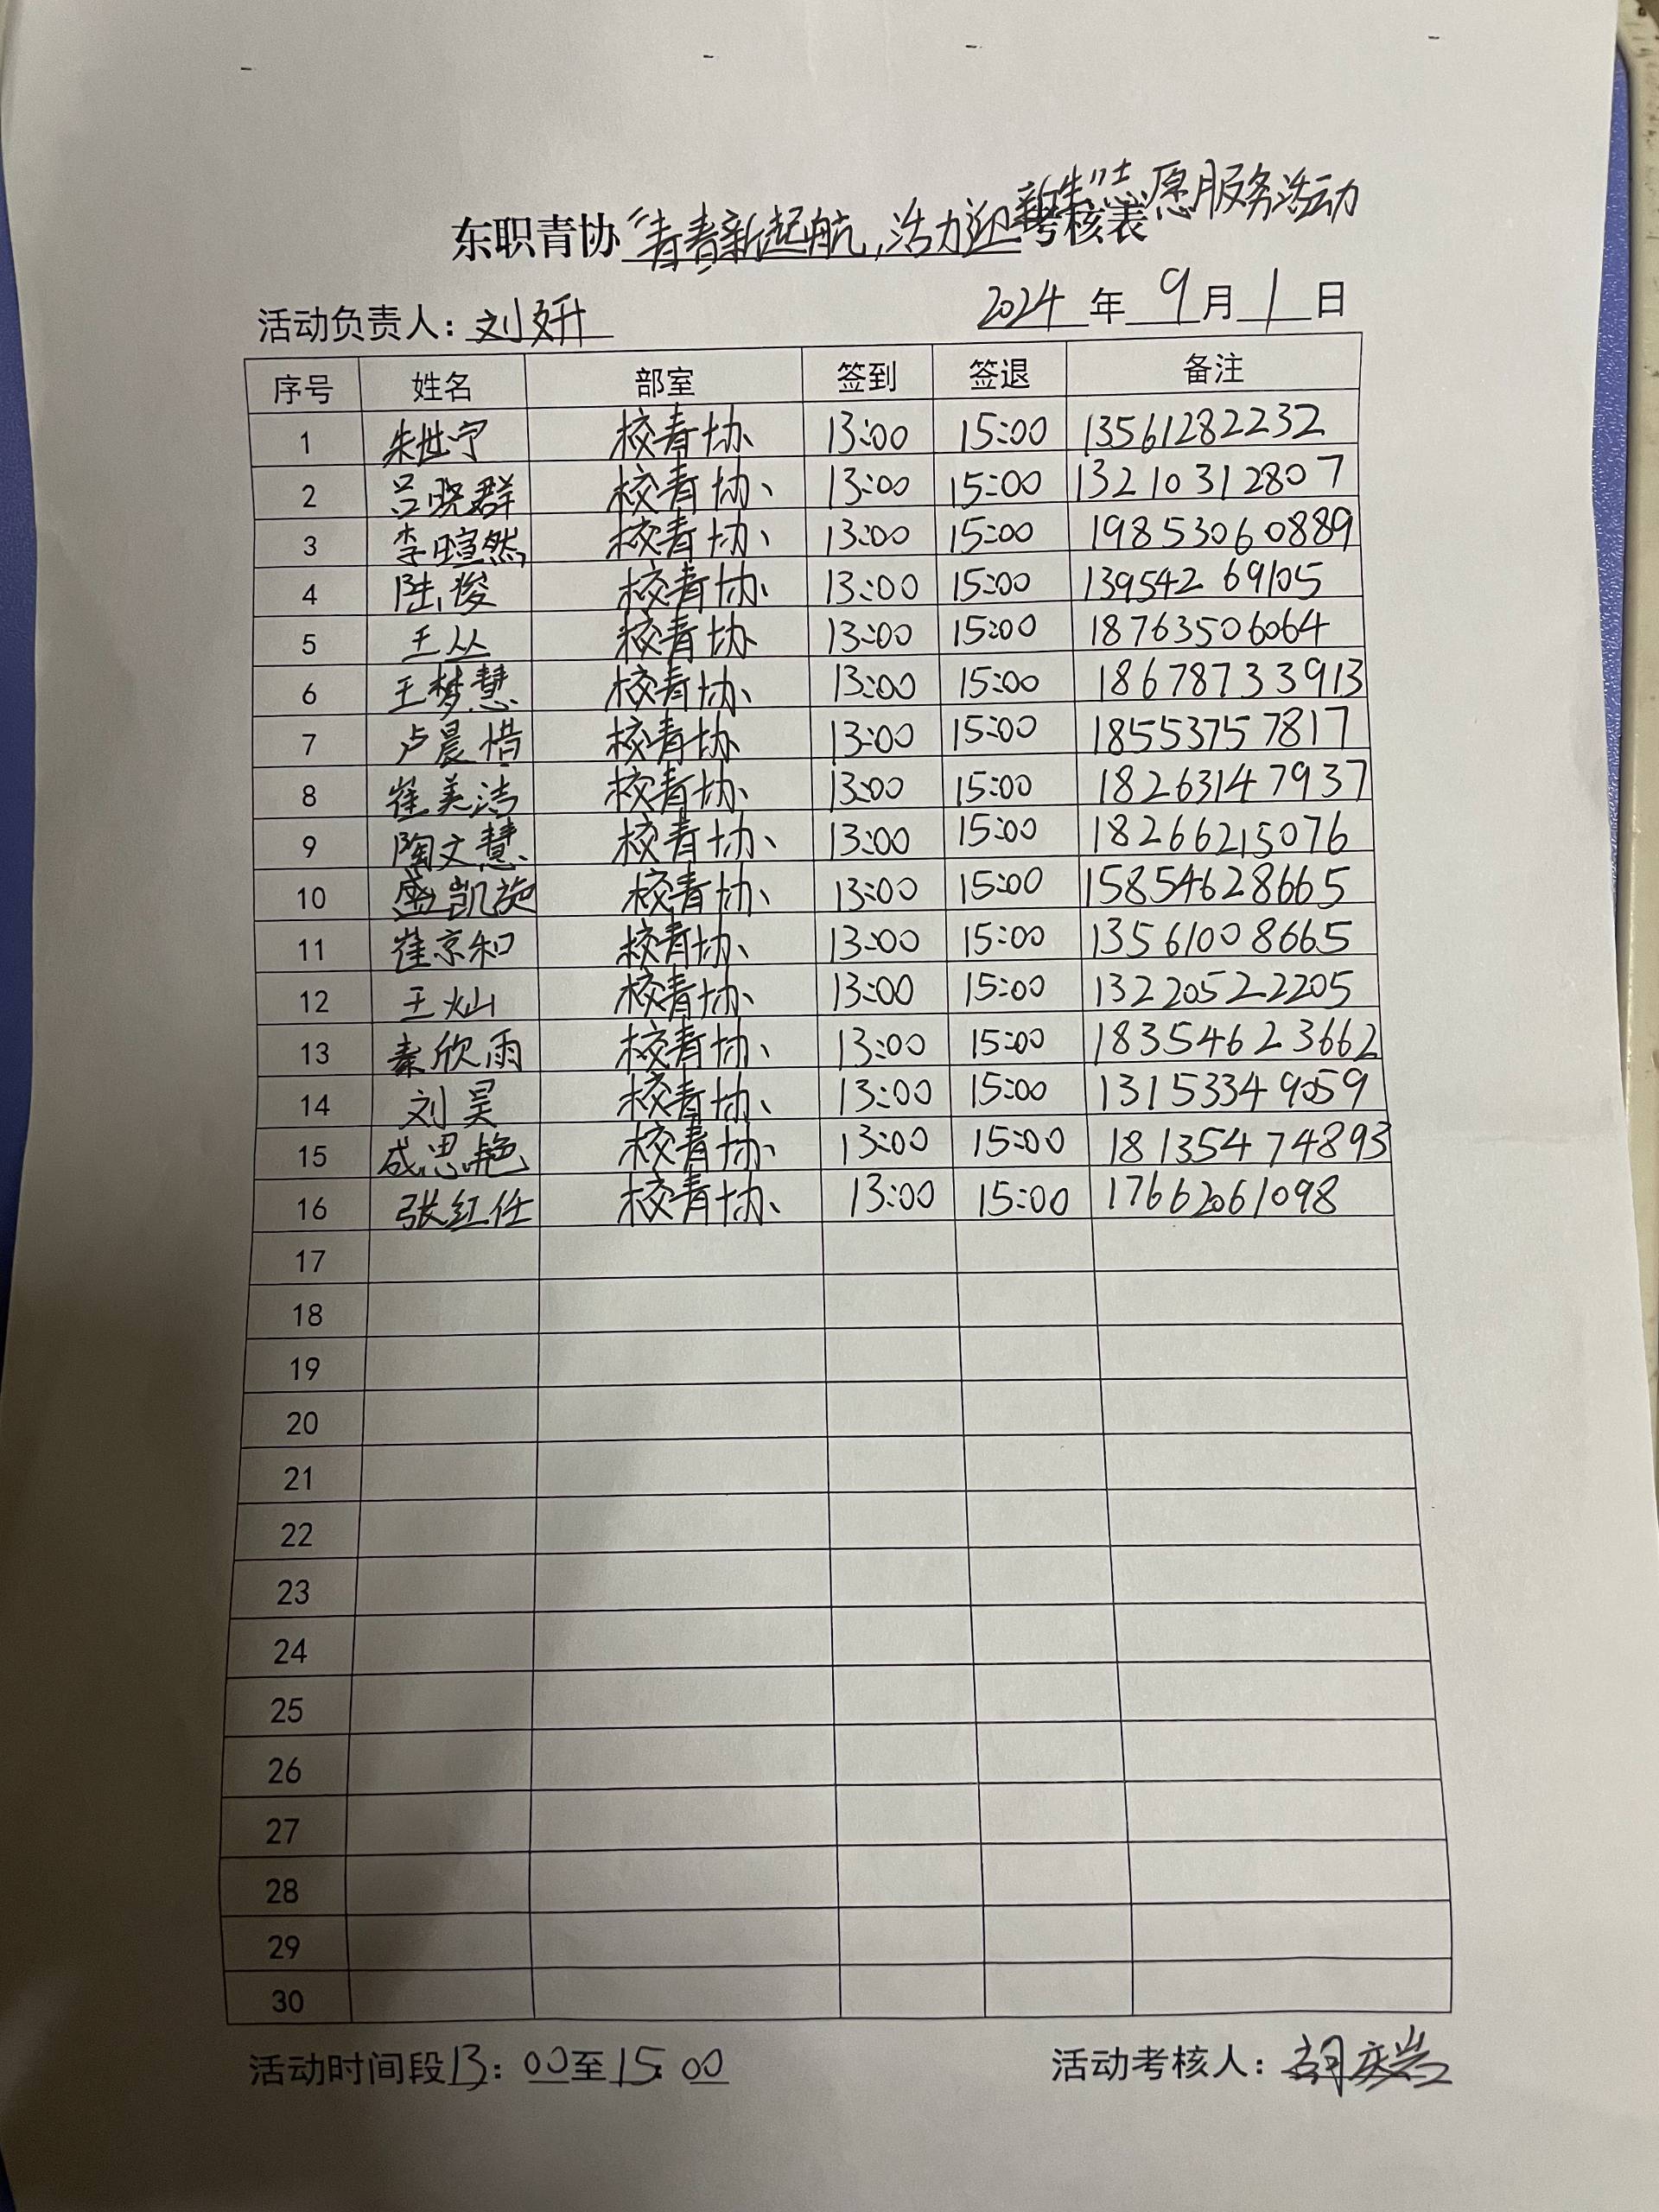 东职青协“青春新起航，活力迎新生”志愿服务活动考核表
活动负责人：刘妍 2024年9月1日
序号 姓名 部室 签到 签退 备注
1 朱世宁 校青协 13:00 15:00 13561282232
2 吕晓群 校青协 13:00 15:00 13210312807
3 李暄然 校青协 13:00 15:00 19853060889
4 陆俊 校青协 13:00 15:00 13954269105
5 王丛 校青协 13:00 15:00 18763506064
6 王梦慧 校青协 13:00 15:00 18678733913
7 卢晨惜 校青协 13:00 15:00 18553757817
8 崔美洁 校青协 13:00 15:00 18263147937
9 陶文慧 校青协 13:00 15:00 18266215076
10 盛凯旋 校青协 13:00 15:00 15854628665
11 崔京和 校青协 13:00 15:00 13561008665
12 王灿 校青协 13:00 15:00 13220522205
13 秦欣雨 校青协 13:00 15:00 18354623662
14 刘昊 校青协 13:00 15:00 13153349059
15 成思艳 校青协 13:00 15:00 18135474893
16 张红任 校青协 13:00 15:00 17662061098
17
18
19
20
21
22
23
24
25
26
27
28
29
30
活动时间段13：00至15:00 活动考核人：胡庆岩